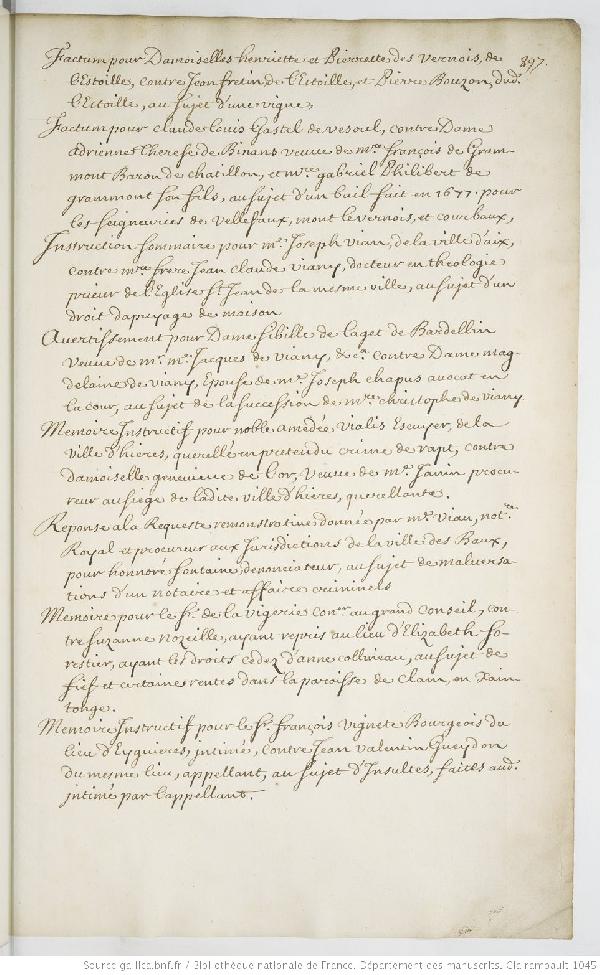 897.
Factum pour Damoiselles henriette et Pierrette des Vernois, de
l'Estoille, contre Jean fretin, de l'Estoille, et Pierre Bouzon, dud.
l'Estoille, au sujet d'une vigne,
Factum pour claude louis Gastel de vesoul, contre Dame
adrienne Therese de Binans veuve de mre. françois de Gram-
mont Baron de chatillon, et mre. gabriel Philibert de
grammont son fils, au sujet d'un bail fait en 1677. pour
les seigneuries de Vellefaux, mont le vernois, et courbaux,
Instruction sommaire pour mr. Joseph viany, de la ville d'aix,
contre mre. frere Jean Claude viany, docteur en theologie
prieur de l'Eglise St. Jean de la mesme ville, au sujet d'un
droit dapuyage de maison
Avertissement pour Dame sibille de laget de Bardellin
veuve de mr. mre. Jacques de viany, &ca. contre Dame mag-
delaine de viany, Epouse de mr. Joseph chapus avocat en
la cour, au sujet de la succession de mre. christophe de viany
Memoire Instructif pour noble amedée vialis Escuyer, de la
ville d'hieres, querellé en pretendu crime de rapt, contre
damoiselle genevieve de l'or, veuve de mre. Janin procu-
reur au siege de ladite ville d'hieres, querellante.
Reponse a la Requeste remonstrative donnée par mre. vian, notre.
Royal et procureur aux Jurisdictions de la ville des Baux,
pour honnoré fontaine, denonciateur, au sujet de malversa-
tions d'un notaire et affaire criminels
Memoire pour le sr. de la vigerie conser. au grand Conseil, con-
tre suzanne nozeille, ayant repris au lieu d'Elizabeth fo-
restier, ayant les droits cedez d'anne collineau, au sujet de
fief et certaine rentes dans la paroisse de Clam, en xain-
tonge.
Memoire Instructif pour le sr. françois vignete Bourgeois du
lieu d'Eyguieres, intimé, contre Jean valentin Gueydon
du mesme lieu, appellant, au sujet d'Insultes, faites aud.
intimé par l'appellant.
Source gallica.bnf.fr / Bibliothèque nationale de France. Département des manuscrits. Clairambault 1045